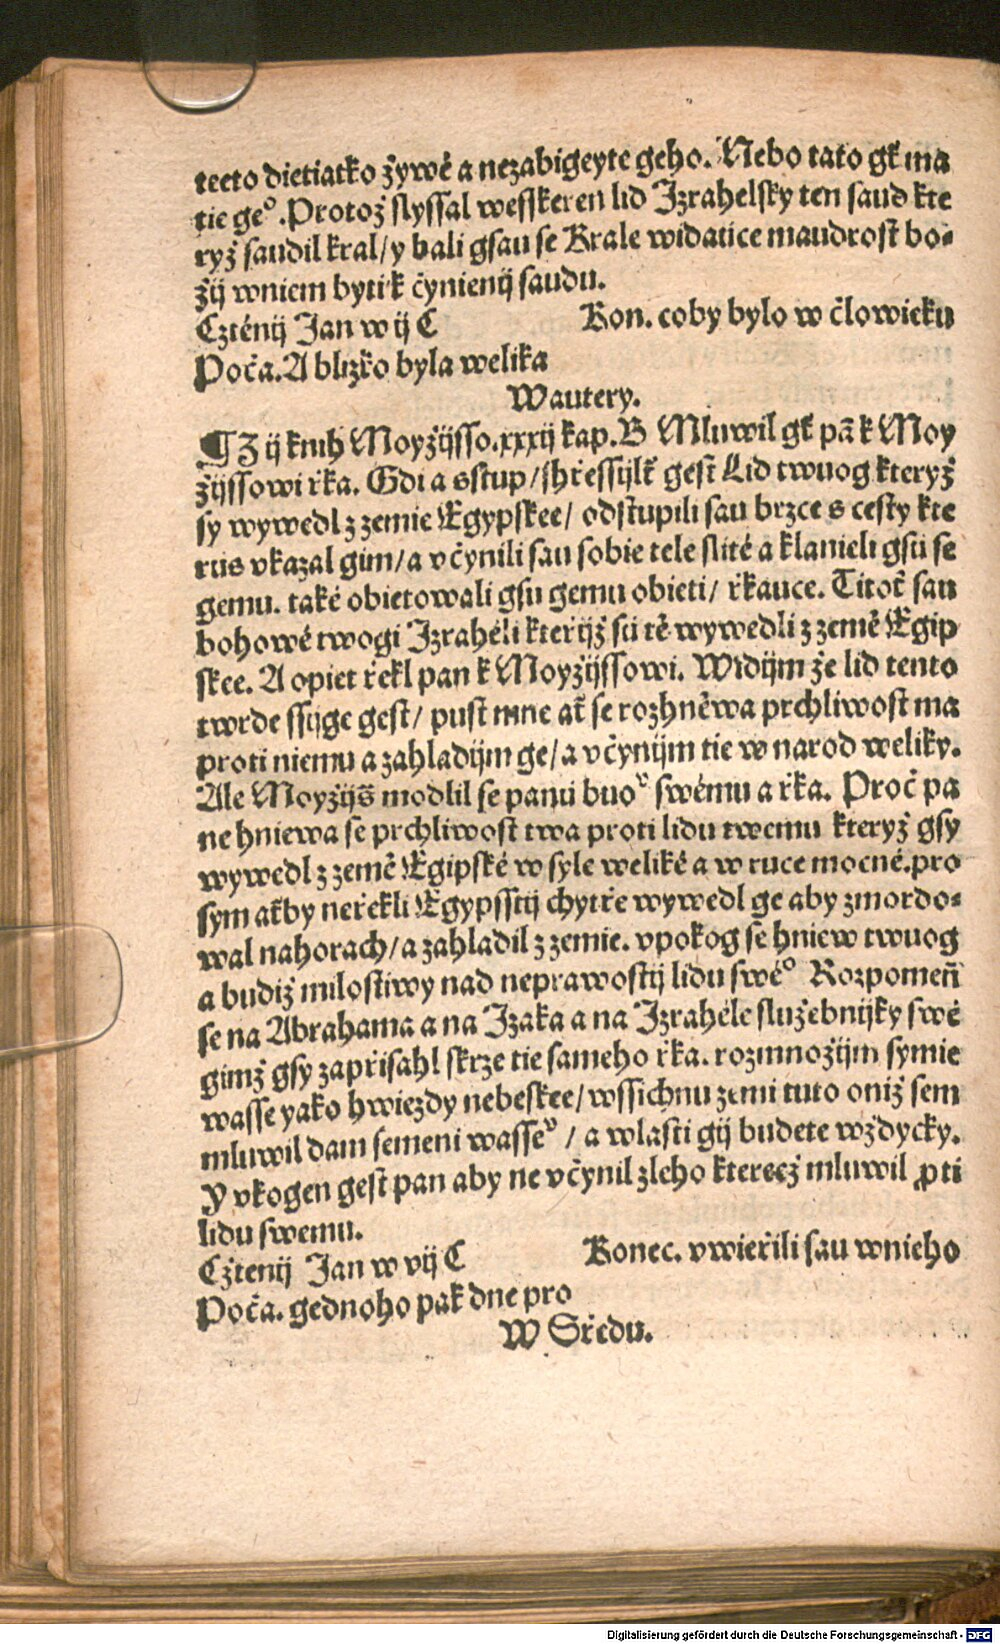 teeto dietiatko żywé a nezabigeyte geho. Nebo tato gt̃ ma
tie geᵒ. Protož slyssal wesskeren lid Izrahelsky ten saud kte
ryž saudil kral/ y bali gsau se Krale widauce maudrost bo-
žij wniem byti k čynienij saudu.
Cztěnij Jan w ij C Kon. coby bylo w člowieku
Počа. A blizko byla welika
Wautery.
¶ Z ij knih Moyžijsso. xxxij kap. B Mluwil gt̃ pã k Moy
žijssowi řka. Gdi a sstup/ shřessijlt̃ gest Lid twuog kteryž
sy wywedl z zemie Egypskee/ odstupili sau brzce s cesty kte
rus vkazal gim/ a včynili sau sobie tele slité a klanieli gsu se
gemu. také obietowali gsu gemu obieti/ řkauce. Titoť sau
bohowé twogi Izraheli kteřijž su tě wywedli z země Egip
skee. A opiet řekl pan k Moyžijssowi. Widijm že lid tento
twrde ssijge gest/ pust mne ať se rozhněwa prchliwost ma
proti niemu a zahladijm ge/ a včynijm tie w narod weliky.
Ale Moyžijš modlil se panu buoᵘ swému a řka. Proč pa
ne hniewa se prchliwost twa proti lidu twemu kteryž gsy
wywedl z země Egipské w syle weliké a w ruce mocné. pro
sym aťby neřekli Egypsstij chytře wywedl ge aby zmordo-
wal nahorach/ a zahladil z zemie. vpokog se hniew twuog
a budiž milostiwy nad neprawostij lidu swéᵒ Rozpomeň
se na Abrahama a na Izaka a na Izrahéle služebnijky swé
gimž gsy zapřisahl skrze tie sameho řka. rozmnožijm symie
wasse yako hwiezdy nebeskee/ wssichnu zemi tuto oniž sem
mluwil dam semeni wasseᵘ / a wlasti gij budete wždycky.
Y vkogen gest pan aby ne včynil zleho ktereež mluwil ꝓti
lidu swemu.
Cžtenij Jan w vij C Konec. vwieřili sau wnieho
Počа. gednoho pak dne pro
W Středu.
Digitalisierung gefördert durch die Deutsche Forschungsgemeinschaft - DFG